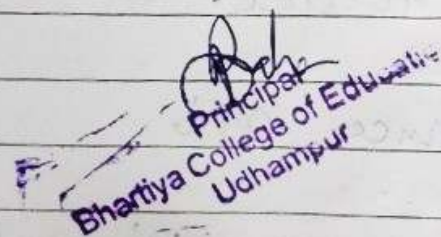 Principal
Bhartiya College of Educatio
Udhampur